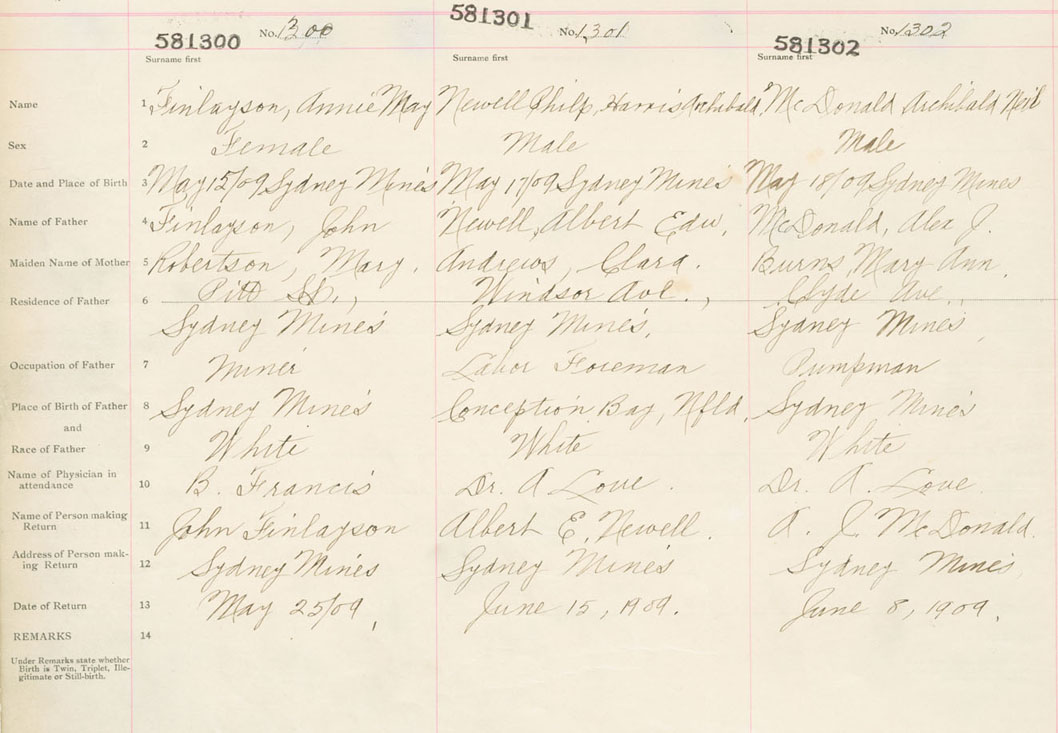 581300 No. 1300 581301 No. 1301 581302 No. 1302
Surname first Surname first Surname first
Name 1 Finlayson, Annie May Newell Philp, Harris Archibald McDonald Archibald Neil
Sex 2 Female Male Male
Date and Place of Birth 3 May 15/09 Sydney Mines May 17/09 Sydney Mines May 18/09 Sydney Mines
Name of Father 4 Finlayson, John Newell, Albert Edw. McDonald, Alex J.
Maiden Name of Mother 5 Robertson, Mary. Andrews, Clara. Burns, Mary Ann
Residence of Father 6 Pitt St., Windsor Ave., Clyde Ave.,
Sydney Mines Sydney Mines, Sydney Mines
Occupation of Father 7 Miner Labor Foreman Pumpman
Place of Birth of Father 8 Sydney Mines Conception Bay, Nfld, Sydney Mines
and
Race of Father 9 White White White
Name of Physician in
attendance 10 B. Francis Dr. A Love. Dr. A. Love.
Name of Person making
Return 11 John Finlayson Albert E. Newell. A. J. McDonald.
Address of Person mak-
ing Return 12 Sydney Mines Sydney Mines Sydney Mines,
Date of Return 13 May 25/09, June 15, 1909. June 8, 1909.
REMARKS 14
Under Remarks state whether
Birth is Twin, Triplet, Ille-
gitimate or Still-birth.